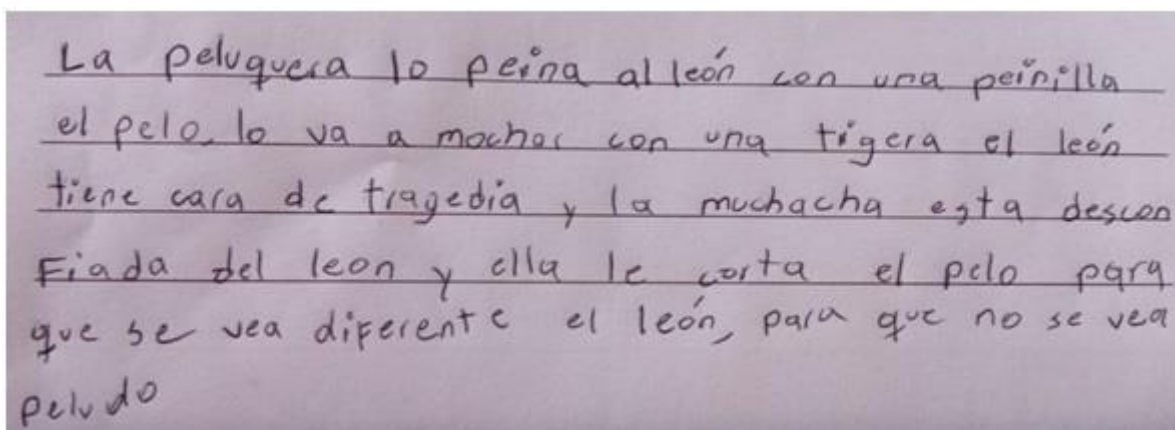 La peluquera lo peina al león con una peinilla
el pelo, lo va a mochar con una tigera el león
tiene cara de tragedia y la muchacha esta descon
Fiada del leon y ella le corta el pelo para
que se vea diferente el león, para que no se vea
peludo